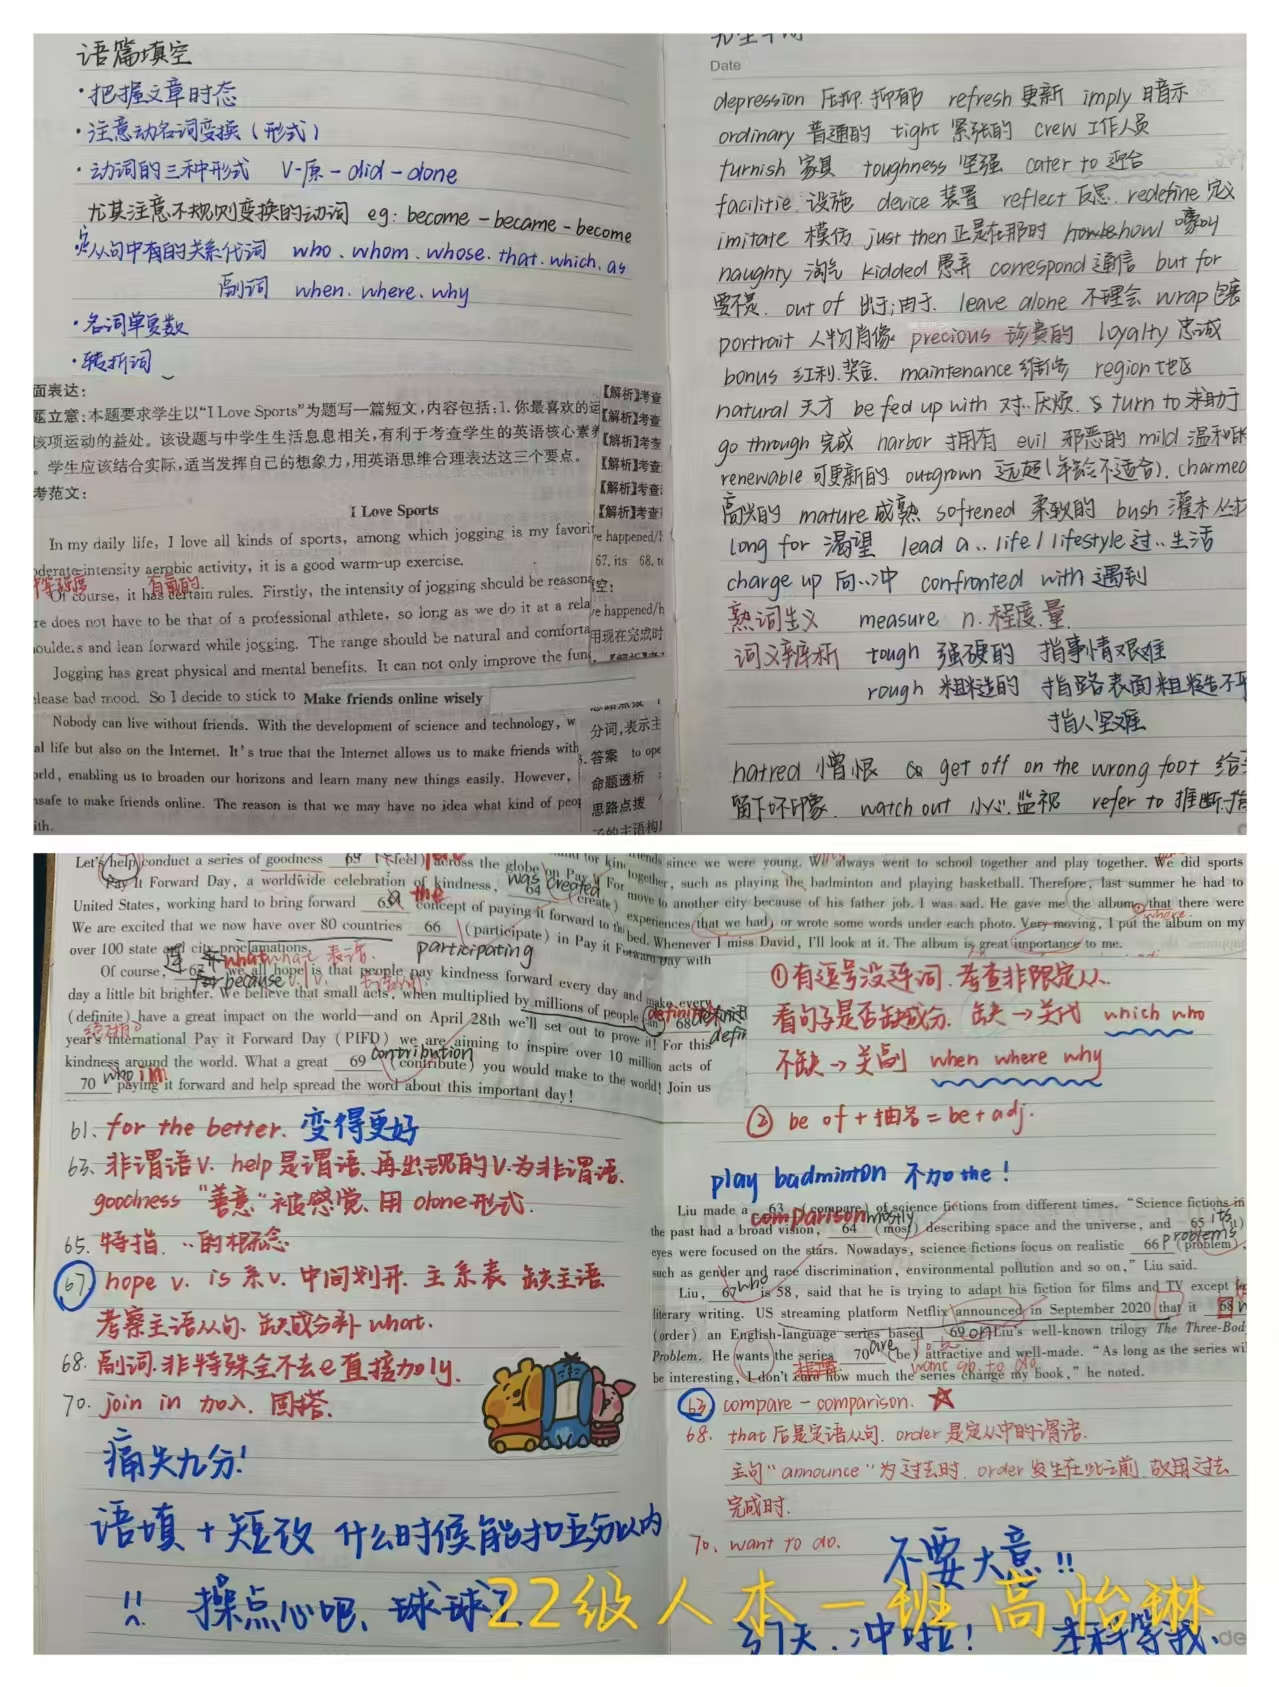 语篇填空
·把握文章时态
·注意动名词变换(形式)
·动词的三种形式 V-原-did-done
尤其注意不规则变换的动词 eg: become-became-become
定从句中有的关系代词 who、whom、whose.that.which.as
副词 when.where.why
·名词单复数
·转折词
面表达:
题立意:本题要求学生以“I Love Sports”为题写一篇短文,内容包括:1.你最喜欢的运
该项运动的益处。该设题与中学生生活息息相关,有利于考查学生的英语核心素养
。学生应该结合实际,适当发挥自己的想象力,用英语思维合理表达这三个要点。
考范文:
I Love Sports
In my daily life, I love all kinds of sports, among which jogging is my favorit
oderate-intensity aerobic activity, it is a good warm-up exercise.
有氧的
Of course, it has certain rules. Firstly, the intensity of jogging should be reason
re does not have to be that of a professional athlete, so long as we do it at a rela
houlders and lean forward while jogging. The range should be natural and comforta
Jogging has great physical and mental benefits. It can not only improve the func
lease bad mood. So I decide to stick to
Make friends online wisely
Nobody can live without friends. With the development of science and technology, w
al life but also on the Internet. It's true that the Internet allows us to make friends with
orld, enabling us to broaden our horizons and learn many new things easily. However,
nsafe to make friends online. The reason is that we may have no idea what kind of peop
ith.
【解析】考查
【解析】考查
【解析】考查
【解析】考查
【解析】考查
【解析】考查
re happened/h
67. its 68. to
空:
ve happened/h
用现在完成时
分词,表示主
答案 to ope
命题透析
思路点拨
Date
depression 压抑.抑郁 refresh 更新 imply 暗示
ordinary 普通的 tight 紧张的 crew 工作人员
furnish 家具 toughness 坚强 cater to 迎合
facilitie.设施 device 装置 reflect 反思. redefine 定义
imitate 模仿 just then 正是在那时 howl 嚎叫
naughty 淘气 kidded 愚弄 correspond 通信 but for
要不是. out of 出于;由于. leave alone 不理会 wrap 包裹
portrait 人物肖像 precious 珍贵的 loyalty 忠诚
bonus 红利.奖金. maintenance 维修 region 地区
natural 天才 be fed up with 对..厌烦. turn to 求助于
go through 完成 harbor 拥有 evil 邪恶的 mild 温和的
renewable 可更新的 outgrown 远超(年龄不适合). charmed
高兴的 mature 成熟 softened 柔软的 bush 灌木丛
long for 渴望 lead a .. life / lifestyle 过..生活
charge up 向..冲 confronted with 遇到
熟词生义 measure n.程度.量.
词义辨析 tough 强硬的 指事情艰难
rough 粗糙的 指路表面粗糙不平
指人坚难
hatred 憎恨 get off on the wrong foot 给
留下坏印象. watch out 小心.监视 refer to 推断.指
Let's help conduct a series of goodness 63 (feel) across the globe on Pay It For
Pay It Forward Day, a worldwide celebration of kindness, was created 64 (create)
United States, working hard to bring forward 65 the concept of paying it forward to the
We are excited that we now have over 80 countries 66 (participate) in Pay it Forward Day with
over 100 state and city proclamations.
participating
what
because
Of course, 67 we all hope is that people pay kindness forward every day and make every
day a little bit brighter. We believe that small acts, when multiplied by millions of people can 68
(definite) have a great impact on the world—and on April 28th we'll set out to prove it! For this
year's International Pay it Forward Day (PIFD) we are aiming to inspire over 10 million acts of
contribution
kindness around the world. What a great 69 (contribute) you would make to the world! Join us
70 paying it forward and help spread the word about this important day!
who in
61. for the better. 变得更好
63. 非谓语v. help是谓语.再出现的v.为非谓语.
goodness “善意”被感觉.用done形式.
65. 特指. ..的概念
67 hope v. is 系v. 中间划开. 主系表 缺主语.
考察主语从句.缺成分补what.
68. 副词.非特殊全不去e直接加ly.
70. join in 加入.固搭.
痛失九分!
语填+短改 什么时候能扣五分以内
!! 操点心吧、球球了
friends since we were young. We always went to school together and play together. We did sports
together, such as playing the badminton and playing basketball. Therefore, last summer he had to
move to another city because of his father job. I was sad. He gave me the album, that there were
where
experiences (that we had) or wrote some words under each photo. Very moving, I put the album on my
bed. Whenever I miss David, I'll look at it. The album is great importance to me.
①有逗号没连词.考查非限定从.
看句子是否缺成分. 缺→关代 which who
不缺→关副 when where why
② be of+抽名=be+adj.
play badminton 不加the!
Liu made a 63 (compare) of science fictions from different times. “Science fictions in
comparison mostly
the past had a broad vision, 64 (most) describing space and the universe, and 65 its
eyes were focused on the stars. Nowadays, science fictions focus on realistic 66 (problem),
problems
such as gender and race discrimination, environmental pollution and so on,” Liu said.
Liu, 67 who is 58, said that he is trying to adapt his fiction for films and TV except
literary writing. US streaming platform Netflix announced in September 2020 that it 68
(order) an English-language series based 69 on Liu's well-known trilogy The Three-Body
Problem. He wants the series 70 (be) attractive and well-made. “As long as the series wi
are
be interesting, I don't care how much the series change my book,” he noted.
63 compare - comparison.
68. that后是定语从句. order是定从中的谓语.
主句“announce”为过去时.order发生在此之前.故用过去
完成时.
70. want to do.
不要大意!!
冲啦! 本科等我、
22级人本一班 高怡琳
de